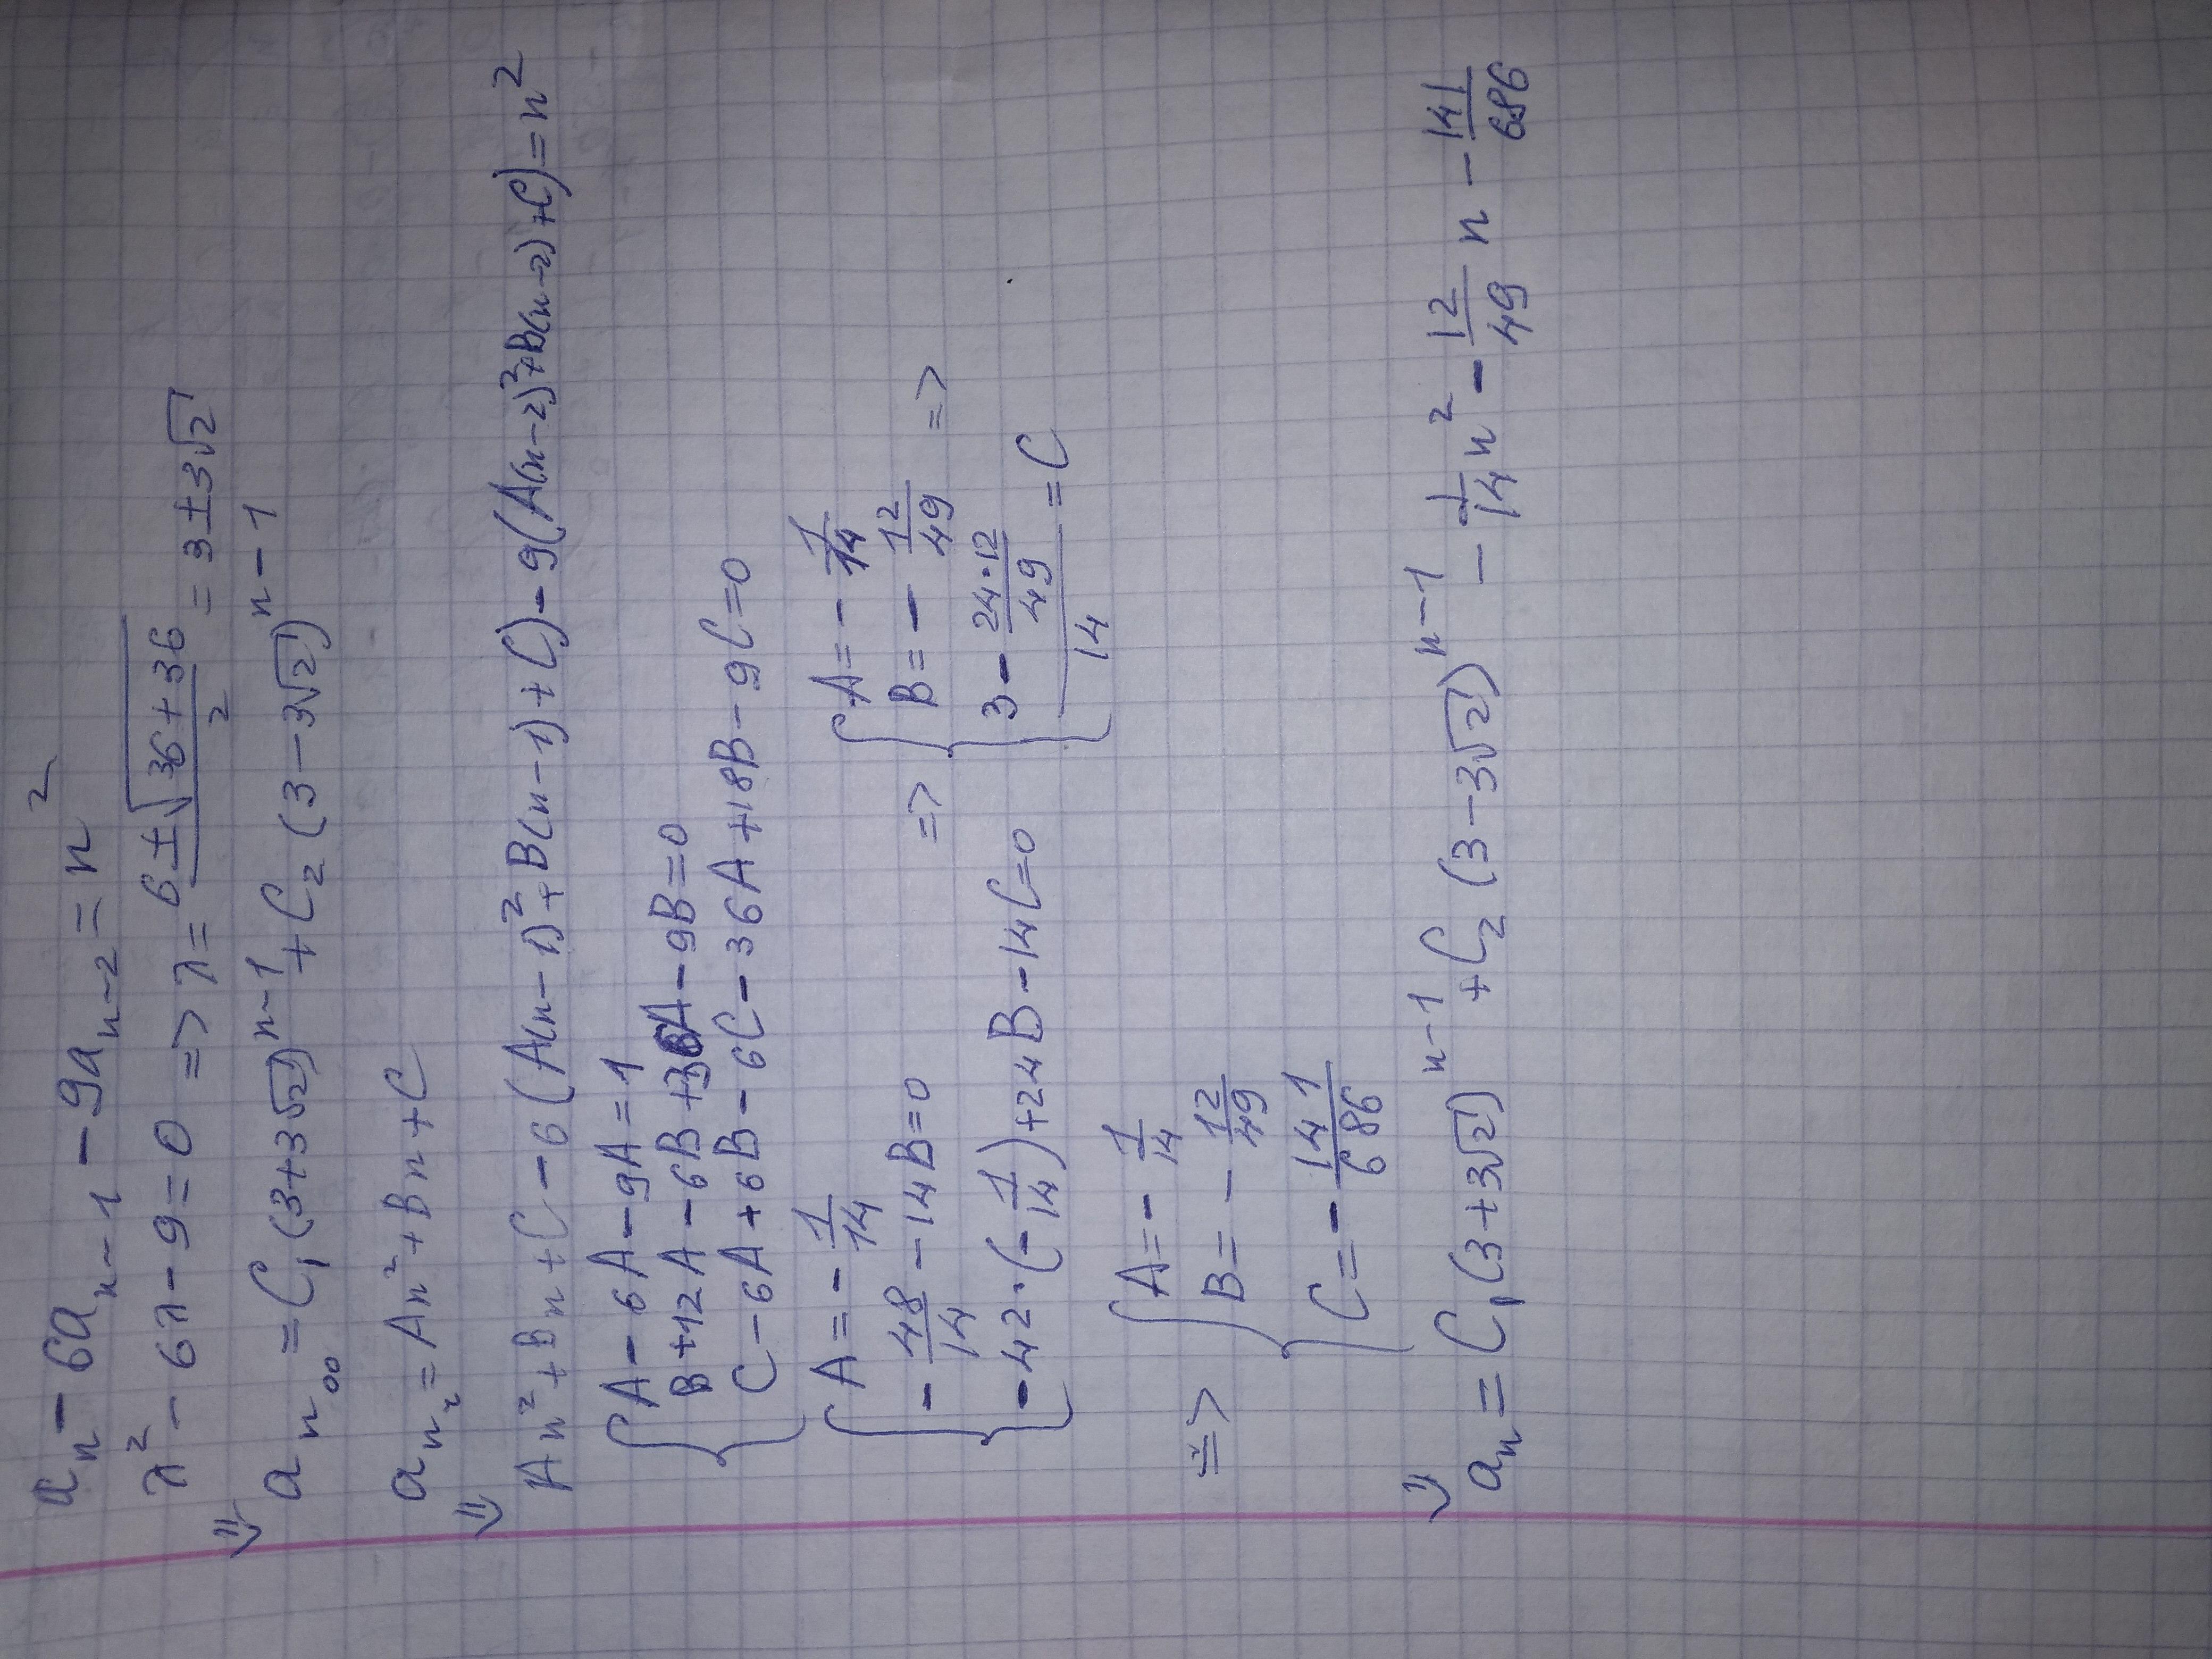 a_n - 6a_{n-1} - 9a_{n-2} = n^2
λ^2 - 6λ - 9 = 0 => λ = \frac{6 ± \sqrt{36+36}}{2} = 3 ± 3√2
⇓
a_{n_{oo}} = C_1(3+3√2)^{n-1} + C_2(3-3√2)^{n-1}
a_{n_r} = An^2 + Bn + C
⇓
An^2 + Bn + C - 6(A(n-1)^2 + B(n-1) + C) - 9(A(n-2)^2 + B(n-2) + C) = n^2
{ A - 6A - 9A = 1
B + 12A - 6B + 36A - 9B = 0
C - 6A + 6B - 6C - 36A + 18B - 9C = 0
{ A = -\frac{1}{14}
-\frac{48}{14} - 14B = 0
-42·(-\frac{1}{14}) + 24B - 14C = 0
=> { A = -\frac{1}{14}
B = -\frac{12}{49} =>
\frac{3 - \frac{24·12}{49}}{14} = C
=> { A = -\frac{1}{14}
B = -\frac{12}{49}
C = -\frac{141}{686}
⇓
a_n = C_1(3+3√2)^{n-1} + C_2(3-3√2)^{n-1} - \frac{1}{14}n^2 - \frac{12}{49}n - \frac{141}{686}